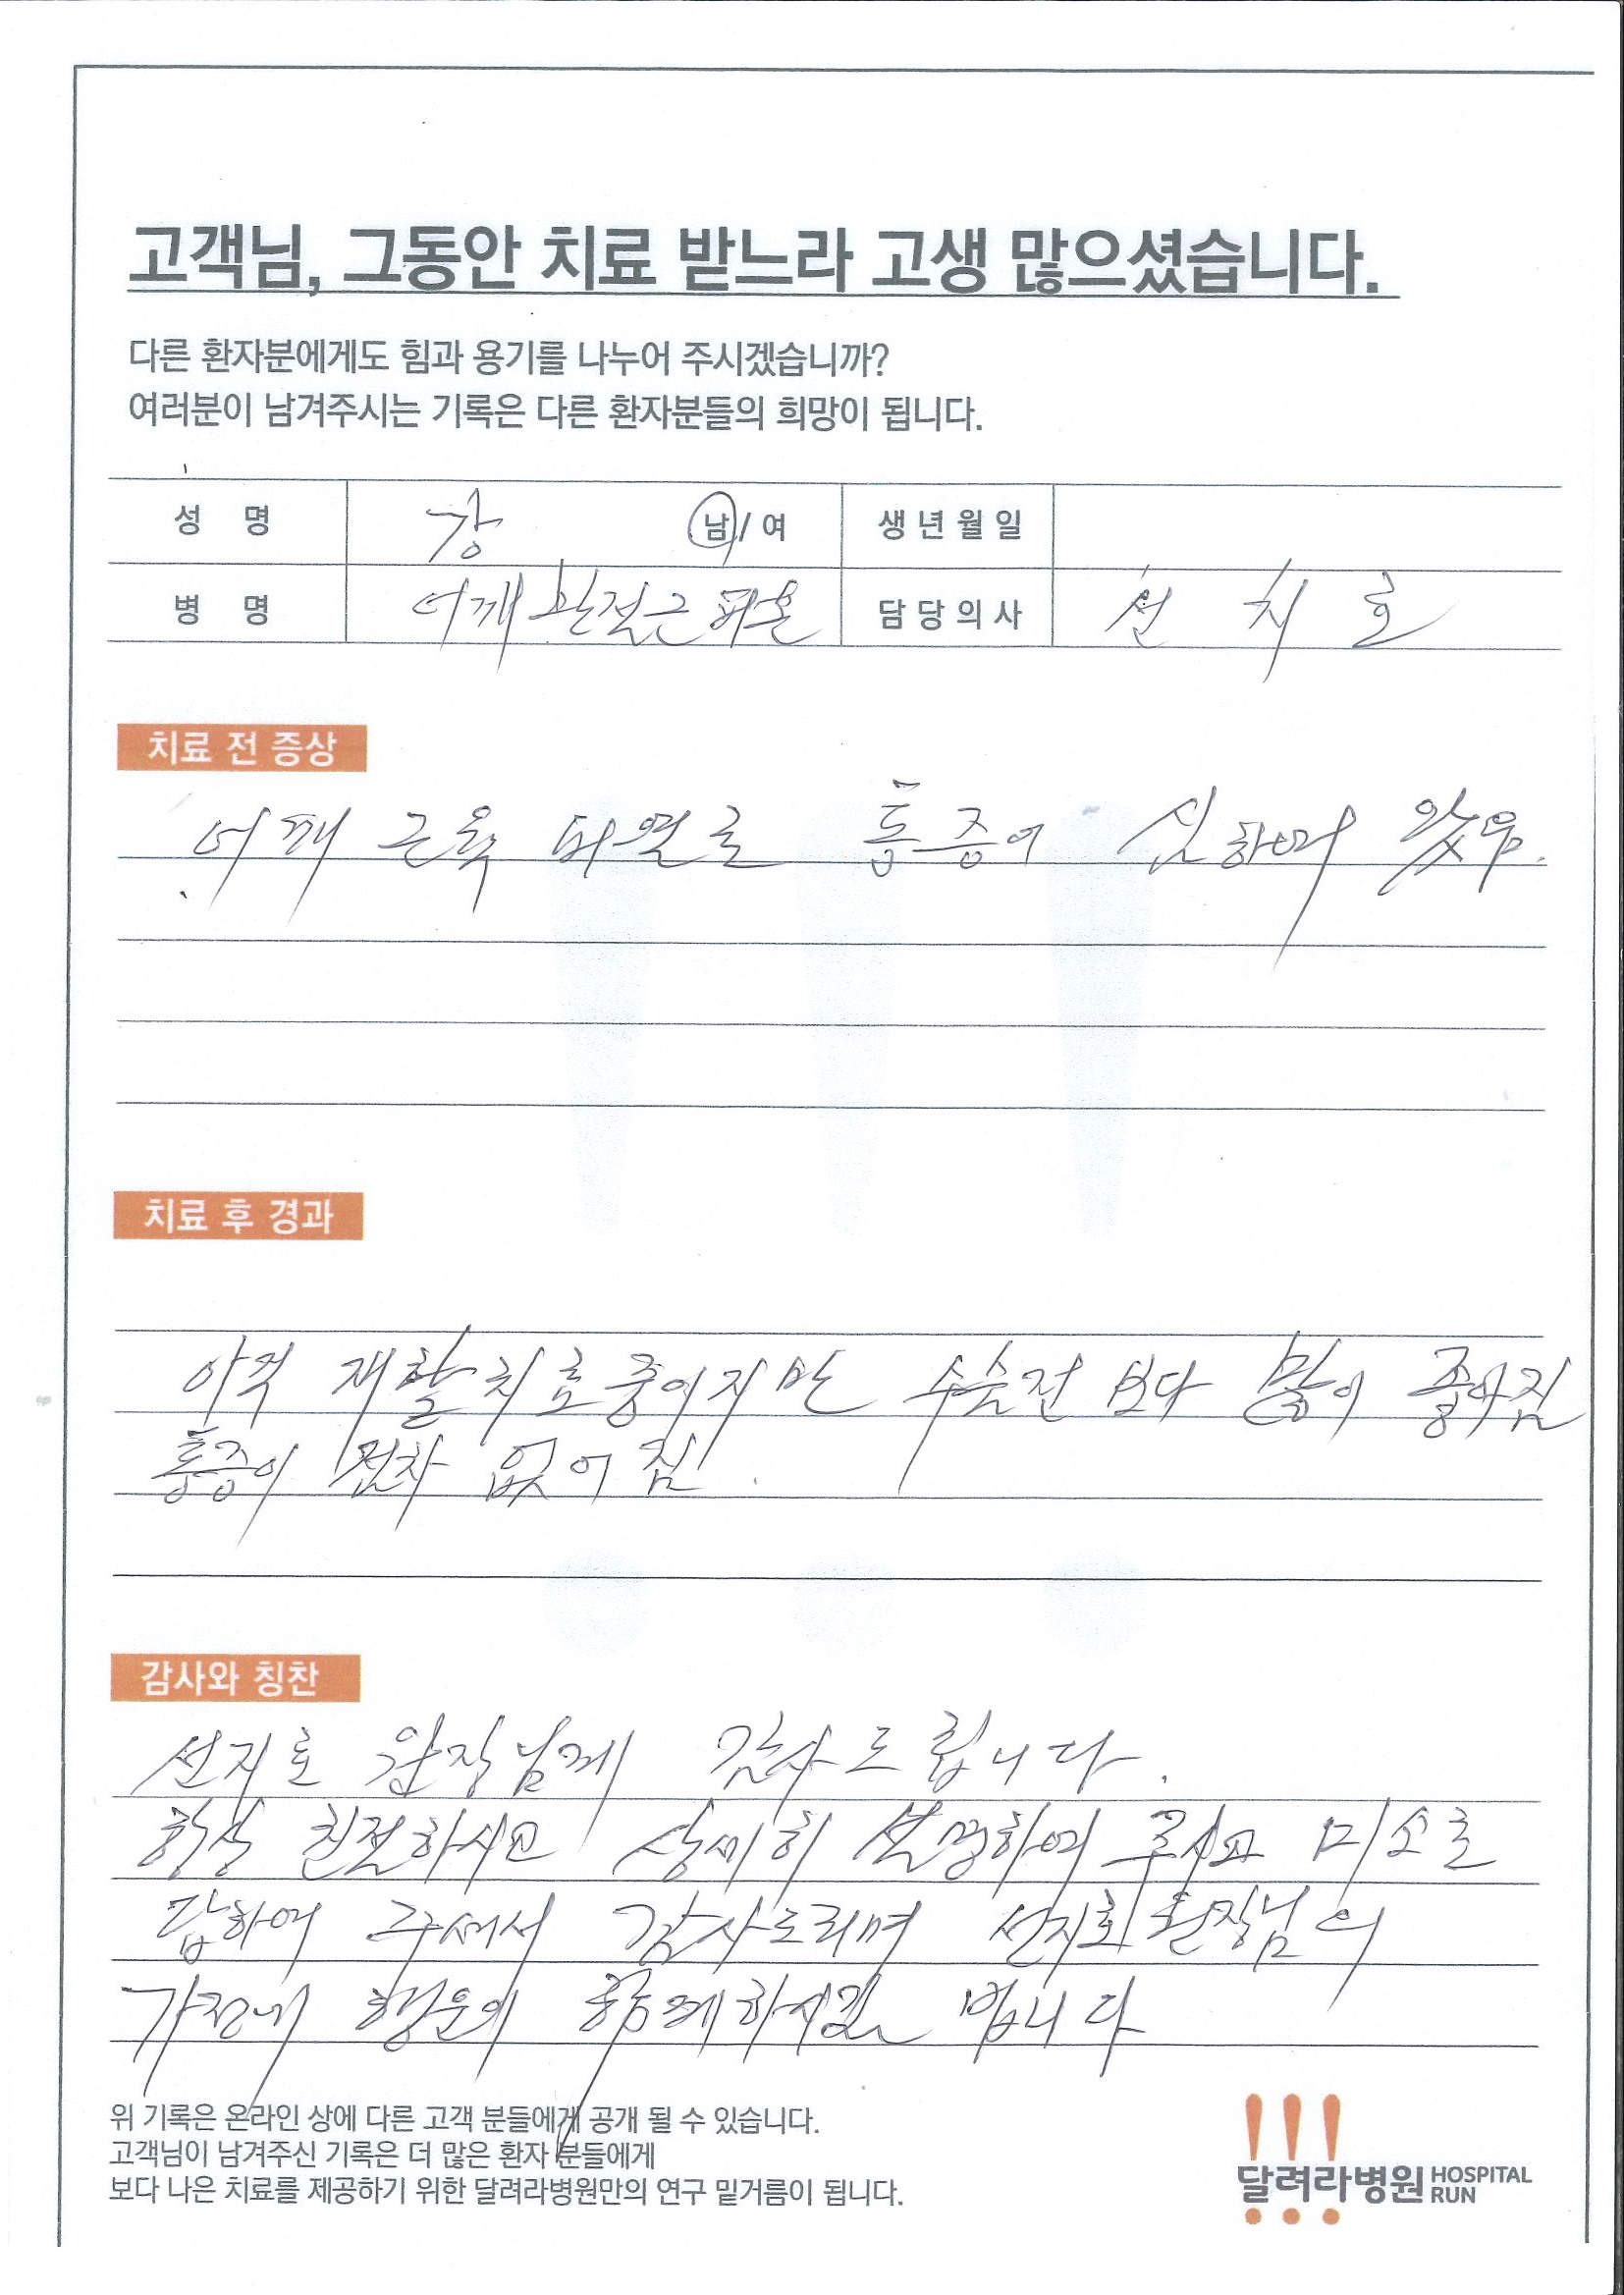 고객님, 그동안 치료 받느라 고생 많으셨습니다.
다른 환자분에게도 힘과 용기를 나누어 주시겠습니까?
여러분이 남겨주시는 기록은 다른 환자분들의 희망이 됩니다.
성 명 강 남/여 생년월일
병 명 어깨 관절근 파열 담당의사 선 치 호
치료 전 증상
어깨 근육 파열로 통증이 심하여 왔음.
치료 후 경과
아직 재활치료중이지만 수술전 보다 많이 좋아짐
통증이 점차 없어짐.
감사와 칭찬
선지호 원장님께 감사드립니다.
항상 친절하시고 상세히 설명하여 주시고 미소로
답하여 주셔서 감사드리며 선지호 원장님의
가정에 행운이 함께하시길 빕니다
위 기록은 온라인 상에 다른 고객 분들에게 공개 될 수 있습니다.
고객님이 남겨주신 기록은 더 많은 환자 분들에게
보다 나은 치료를 제공하기 위한 달려라병원만의 연구 밑거름이 됩니다.
달려라병원 HOSPITAL RUN